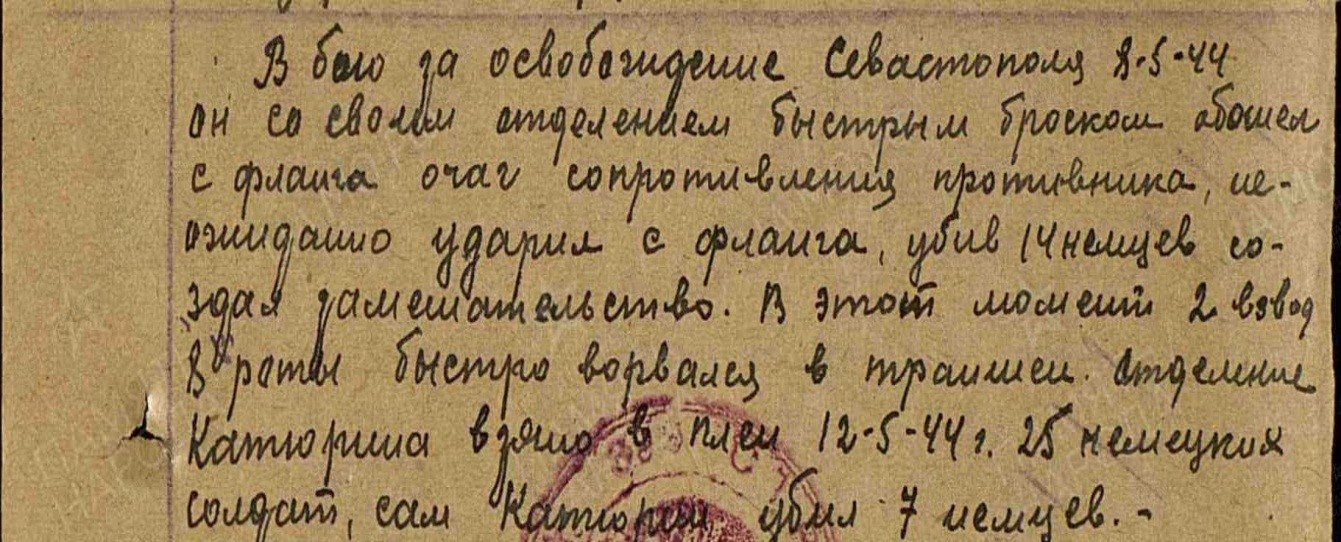 В бою за освобождение Севастополя 8-5-44
он со своим отделением быстрым броском обошел
с фланга очаг сопротивления противника, не-
ожиданно ударил с фланга, убив 14 немцев со-
здал замешательство. В этот момент 2 взвод
8 роты быстро ворвался в траншеи. Отделение
Катюрина взяло в плен 12-5-44 г. 25 немецких
солдат, сам Катюрин убил 7 немцев.-